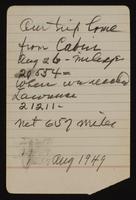 Our trip home
from Cabin
Aug 26 - mileage
20554 =
When we reached
Lawrence
21211 =
net 657 miles
Aug 1949